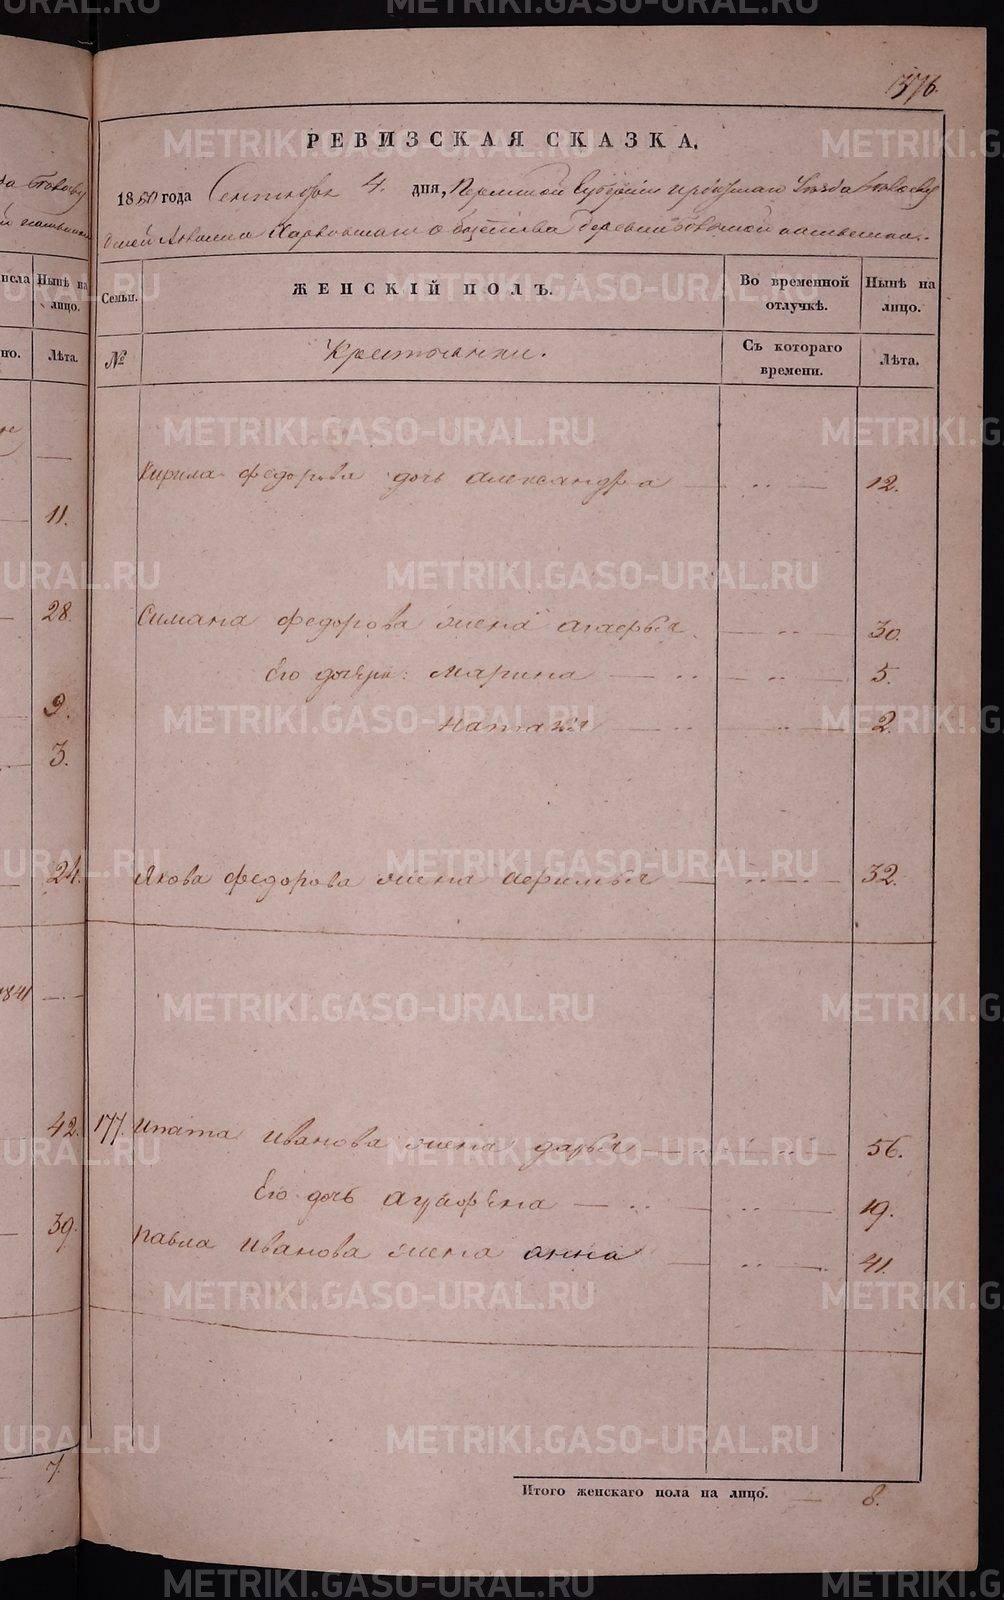 1376.
РЕВИЗСКАЯ СКАЗКА.
1850 года Сентября 4. дня, Пермской Губернии Ирбитскаго Уезда
Харловскаго общества деревни
ЖЕНСКІЙ ПОЛЪ.
Во временной отлучкѣ.
Нынѣ на лицо.
Семьи.
№
Крестьянки.
Съ котораго времени.
Лѣта.
Нынѣ на лицо.
Лѣта.
Кирила Федорова дочь александра 12.
11.
28.
Симана Федорова жена агафья 30.
Его дочери: Марина 5.
9.
Наталья 2.
3.
24.
Якова Федорова жена афимья 32.
1841
42.
177. Ипата Иванова жена дарья 56.
Его дочь аграфѣна 19.
39.
Павла Иванова жена анна 41.
7.
Итого женскаго пола на лицо. 8.
METRIKI.GASO-URAL.RU